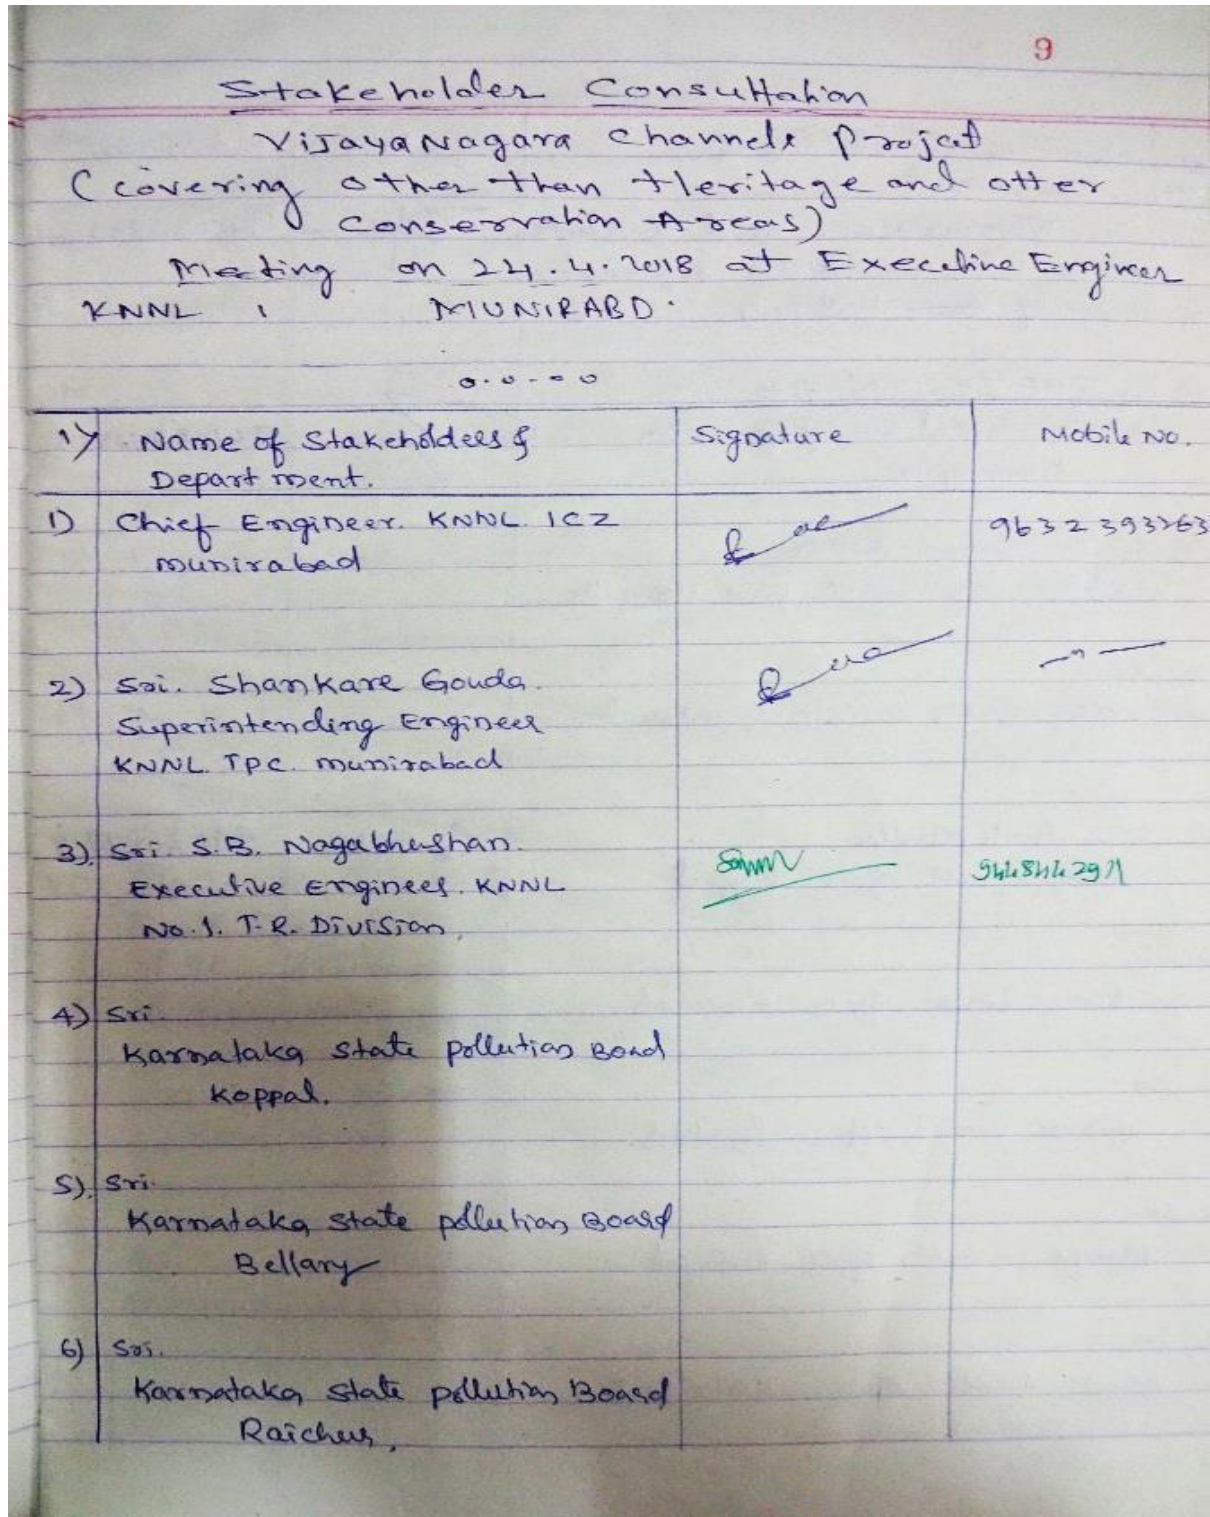 9
Stakeholder Consultation
Vijayanagara Channels Project
(covering other than Heritage and otter
Conservation Areas)
Meeting on 24.4.2018 at Executive Engineer
KNNL, MUNIRABD.
1) Name of Stakeholders & Signature Mobile No.
Department.
1) Chief Engineer. KNNL. ICZ
munirabad
2) Sri. Shankare Gouda.
Superintending Engineer
KNNL. TPC. munirabad
3). Sri. S.B. Nagabhushan.
Executive Engineer. KNNL
No. 1. T.R. Division,
4) Sri.
Karnataka State pollution Boad
Koppal.
5). Sri.
Karnataka State pollution Board
Bellary
6) Sri.
Karnataka State pollution Board
Raichur,